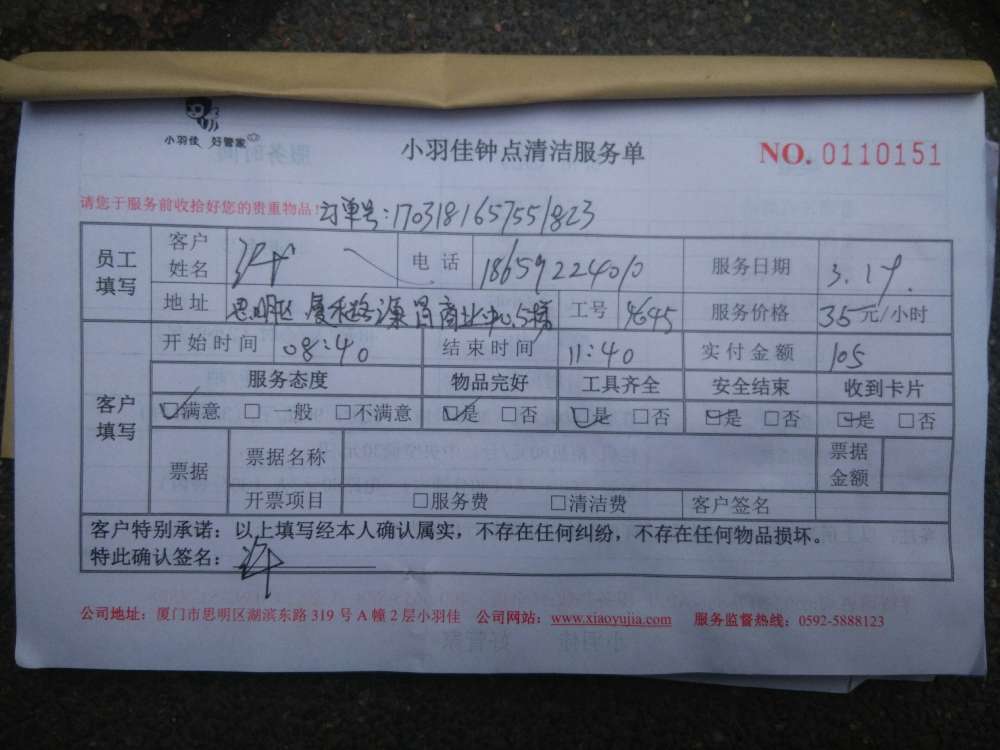 小羽佳 好管家
小羽佳钟点清洁服务单
NO. 0110151
请您于服务前收拾好您的贵重物品！订单号:1703181657551823
员工填写
客户姓名 电话 18659224010 服务日期 3.19.
地址 思明区 厦禾路源昌商业中心5楼 工号 9645 服务价格 35元/小时
客户填写
开始时间 08:40 结束时间 11:40 实付金额 105
服务态度 物品完好 工具齐全 安全结束 收到卡片
☑满意 □一般 □不满意 ☑是 □否 ☑是 □否 ☑是 □否 ☑是 □否
票据 票据名称 票据金额
开票项目 □服务费 □清洁费 客户签名
客户特别承诺：以上填写经本人确认属实，不存在任何纠纷，不存在任何物品损坏。
特此确认签名：
公司地址：厦门市思明区湖滨东路 319 号 A 幢 2 层小羽佳 公司网站：www.xiaoyujia.com 服务监督热线：0592-5888123